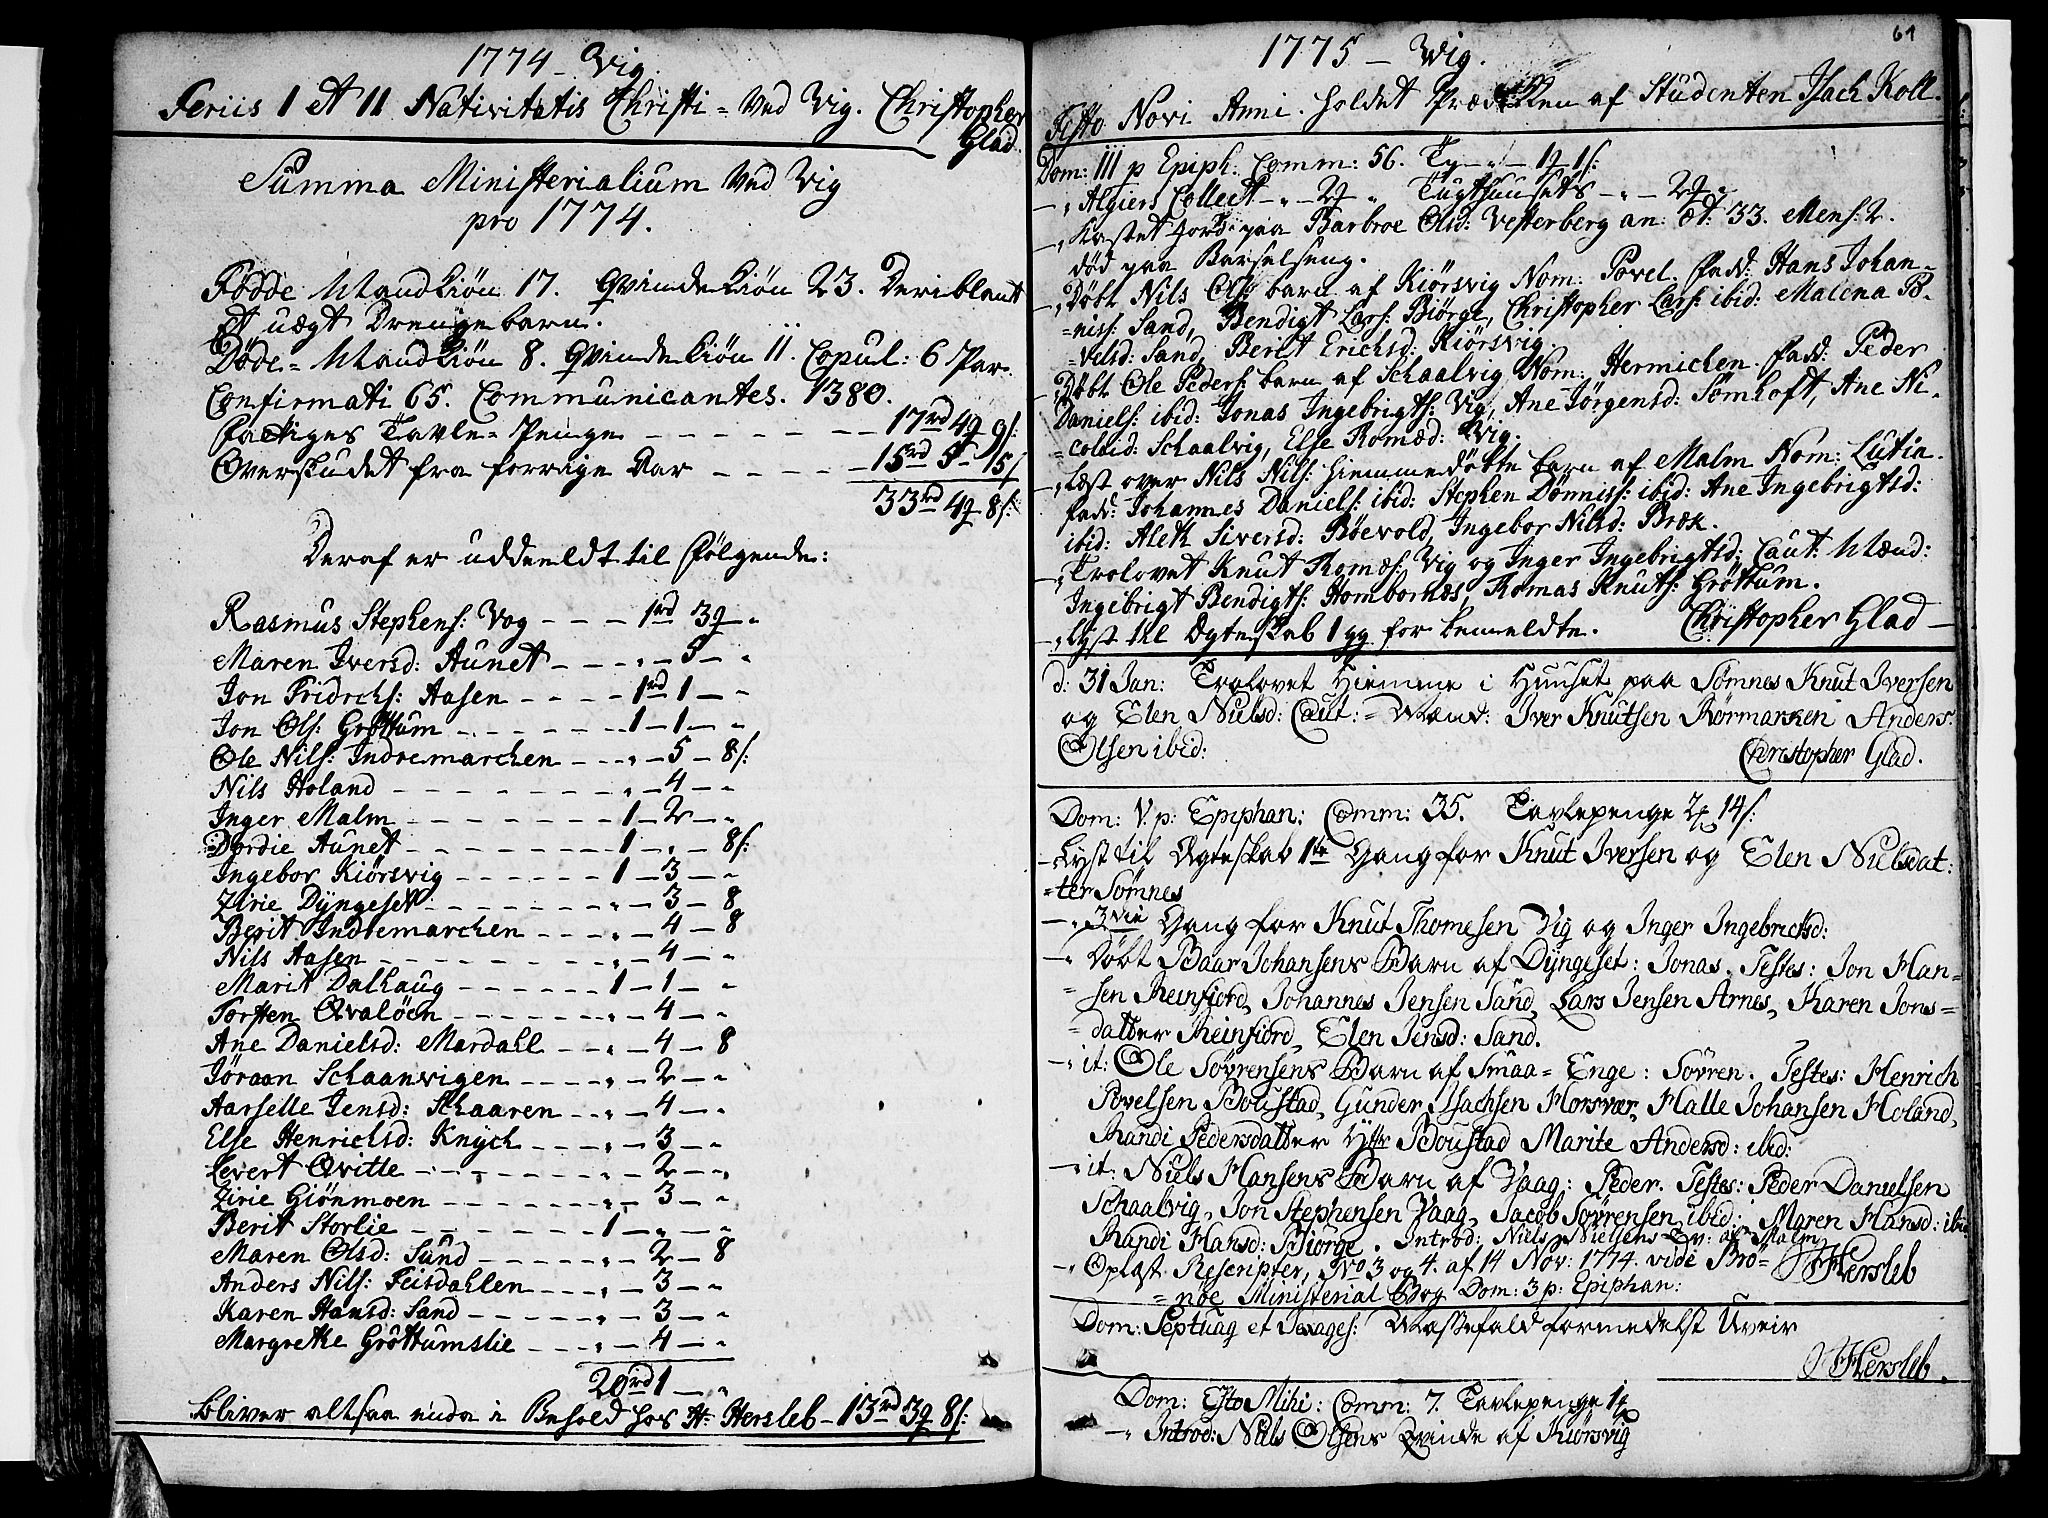 1774 - Vig.
Feriis I et II Nativitatis Christi = Ved Vig. Christopher
Glad.
Summa Ministerialium Ved Vig
pro 1774.
Födde Mandkiön 17. Qvindekiön 23. Deriblant
et uægt Drengebarn.
Döde = Mandkiön 8. Qvindekiön 11. Copul: 6 Par.
Confirmati 65. Communicantes. 1380.
Fattiges Tavle-Penge - - - - - - 17rd 4q 9s:
Overskudet fra forrige Aar - - - - - 15rd 5 - 15s
33rd 4q 8s:
Deraf er uddeeldt til Følgende:
Rasmus Stephens: Vog - - - 1rd 3q - „
Maren Iversd: Aunet - - - - „ - 5 - „
Jon Fridrchs: Aasen - - - - 1rd 1 - „
Jon Ols: Gröttum - - - - - - 1 - 1 - „
Ole Nils: Indremarchen - - - „ - 5 - 8s:
Nils Holand - - - - - - - - „ - 4 - „
Inger Malm - - - - - - - - 1 - 2 - „
Dordie Aunet - - - - - - - 1 - „ - 8s:
Ingebor Kiörsvig - - - - - - 1 - 3 - „
Zirie Dyngeset - - - - - - - „ - 3 - 8
Berit Indremarchen - - - - „ - 4 - 8
Nils Aasen - - - - - - - - - „ - 4 - „
Marit Dalhaug - - - - - - 1 - 1 - „
Torsten Qvalöen - - - - - - „ - 4 - „
Ane Danielsd: Mardahl - - - „ - 4 - 8
Jöraan Schaanvigen - - - - „ - 2 - „
Aarselle Jensd: Schaaren - - „ - 4 - „
Else Henrichsd: Knÿch - - - - „ - 3 - „
Evert Qvitte - - - - - - - - „ - 2 - „
Zirie Giönmoen - - - - - - „ - 3 - „
Berit Storlie - - - - - - - 1 - „ - „
Maren Olsd: Sund - - - - - „ - 2 - 8
Anders Nils: Feisdahlen - - - „ - 3 - „
Karen Hansd: Sand - - - - - „ - 3 - „
Margrethe Gröttumslie - - - „ - 4 - „
20rd 1 - „
Bliver altsaa endu i Behold hos Hr Hersleb - 13rd 3q 8s:
61
1775 - Vig.
Festo Novi Anni. holdet Prædiken af Studenten Isach Koll.
Dom: III p Epiph: Comm: 56. T - „ - 1q 1s:
- „ Algiers Collect - „ - 2q „ Tugthusets - „ - 2q „
- „ Kastet Jord paa Barbroe Olsd: Vesterberg an: æt: 33. Mens: 2.
död paa Barselseng.
- „ Döbt Nils Ols: barn af Kiörsvig Nom: Povel. Fadd: Hans Johan-
=niss: Sand, Bendigt Lars: Biörge, Christopher Lars: ibid: Malena Po-
=velsd: Sand, Berit Erichsd: Kiörsvig.
- „ Döbt Ole Peders: barn af Schaalvig Nom: Hermichen. Fadd: Peder
Daniels: ibid: Jonas Ingebrigts: Vig, Ane Jörgensd: Sömhoft, Ane Ni-
=colaid: Schaalvig, Else Romæd: Vig.
- „ Læst over Nils Nils: hiemmedöbte barn af Malm Nom: Lutia.
Fadd: Johannes Daniels: ibid: Stephen Dönniss: ibid: Ane Ingebrigtsd:
ibid: Aleth Siversd: Böevold, Ingebor Nilsd: Bræk.
- „ Trolovet Knut Thomæs: Vig og Inger Ingebrigtsd: Caut: Mænd:
Ingebrigt Bendigts: Hombornæs, Thomas Knuts: Gröttum.
- „ Lyst til Ægteskab 1 gg for bemeldte. Christopher Glad -
d: 31 Jan: Trolovet Hiemme i Huuset paa Sömnes Knut Iversen
og Elen Nielsd: Caut: = Mænd: Iver Knutsen Rörmarken Anders
Olsen ibid: Christopher Glad.
Dom: V. p: Epiphan: Comm: 35. Tavlepenge 2q 14s:
- Lyst til Ægteskab 1te Gang for Knut Iversen og Elen Nielsdat:
=ter Sömnes
- „ 3die Gang for Knut Thomesen Vig og Inger Ingebrictsd:
- „ Döbt Baar Johansens Barn af Dÿngeset: Jonas. Testes: Jon Han-
=sen Reinfiord, Johannes Jensen Sand, Lars Jensen Arnes, Karen Jons=
=datter Reinfiord, Elen Jensd: Sand.
- „ it: Ole Sövrensens Barn af Smaa = Enge: Sövren. Testes: Henrich
Povelsen Boustad, Gunder Isachsen Horsvær, Halle Johansen Holand,
Randi Pedersdatter Yttr Boustad Marite Andersd: ibid:
- „ it: Niels Hansens Barn af Vaag: Peder. Testes: Peder Danielsen
Schaalvig, Jon Stephensen Vaag, Jacob Sövrensen ibid: Maren Hansd: ibid
Randi Hansd: Biörge. Introd: Niels Nielsens Qv: af Malm
- „ Oplæst Rescripter, No 3 og 4. af 14 Nov: 1774. vide Brö=
=nöe Ministerial Bog Dom: 3 p: Epiphan: Hersleb
Dom: Septuag et Sexages: Messefald formedelst Uveir
Hersleb.
Dom: Esto Mihi: Comm: 7. Tavlepenge 1q
- „ Introd: Niels Olsens Qvinde af Kiörsvig